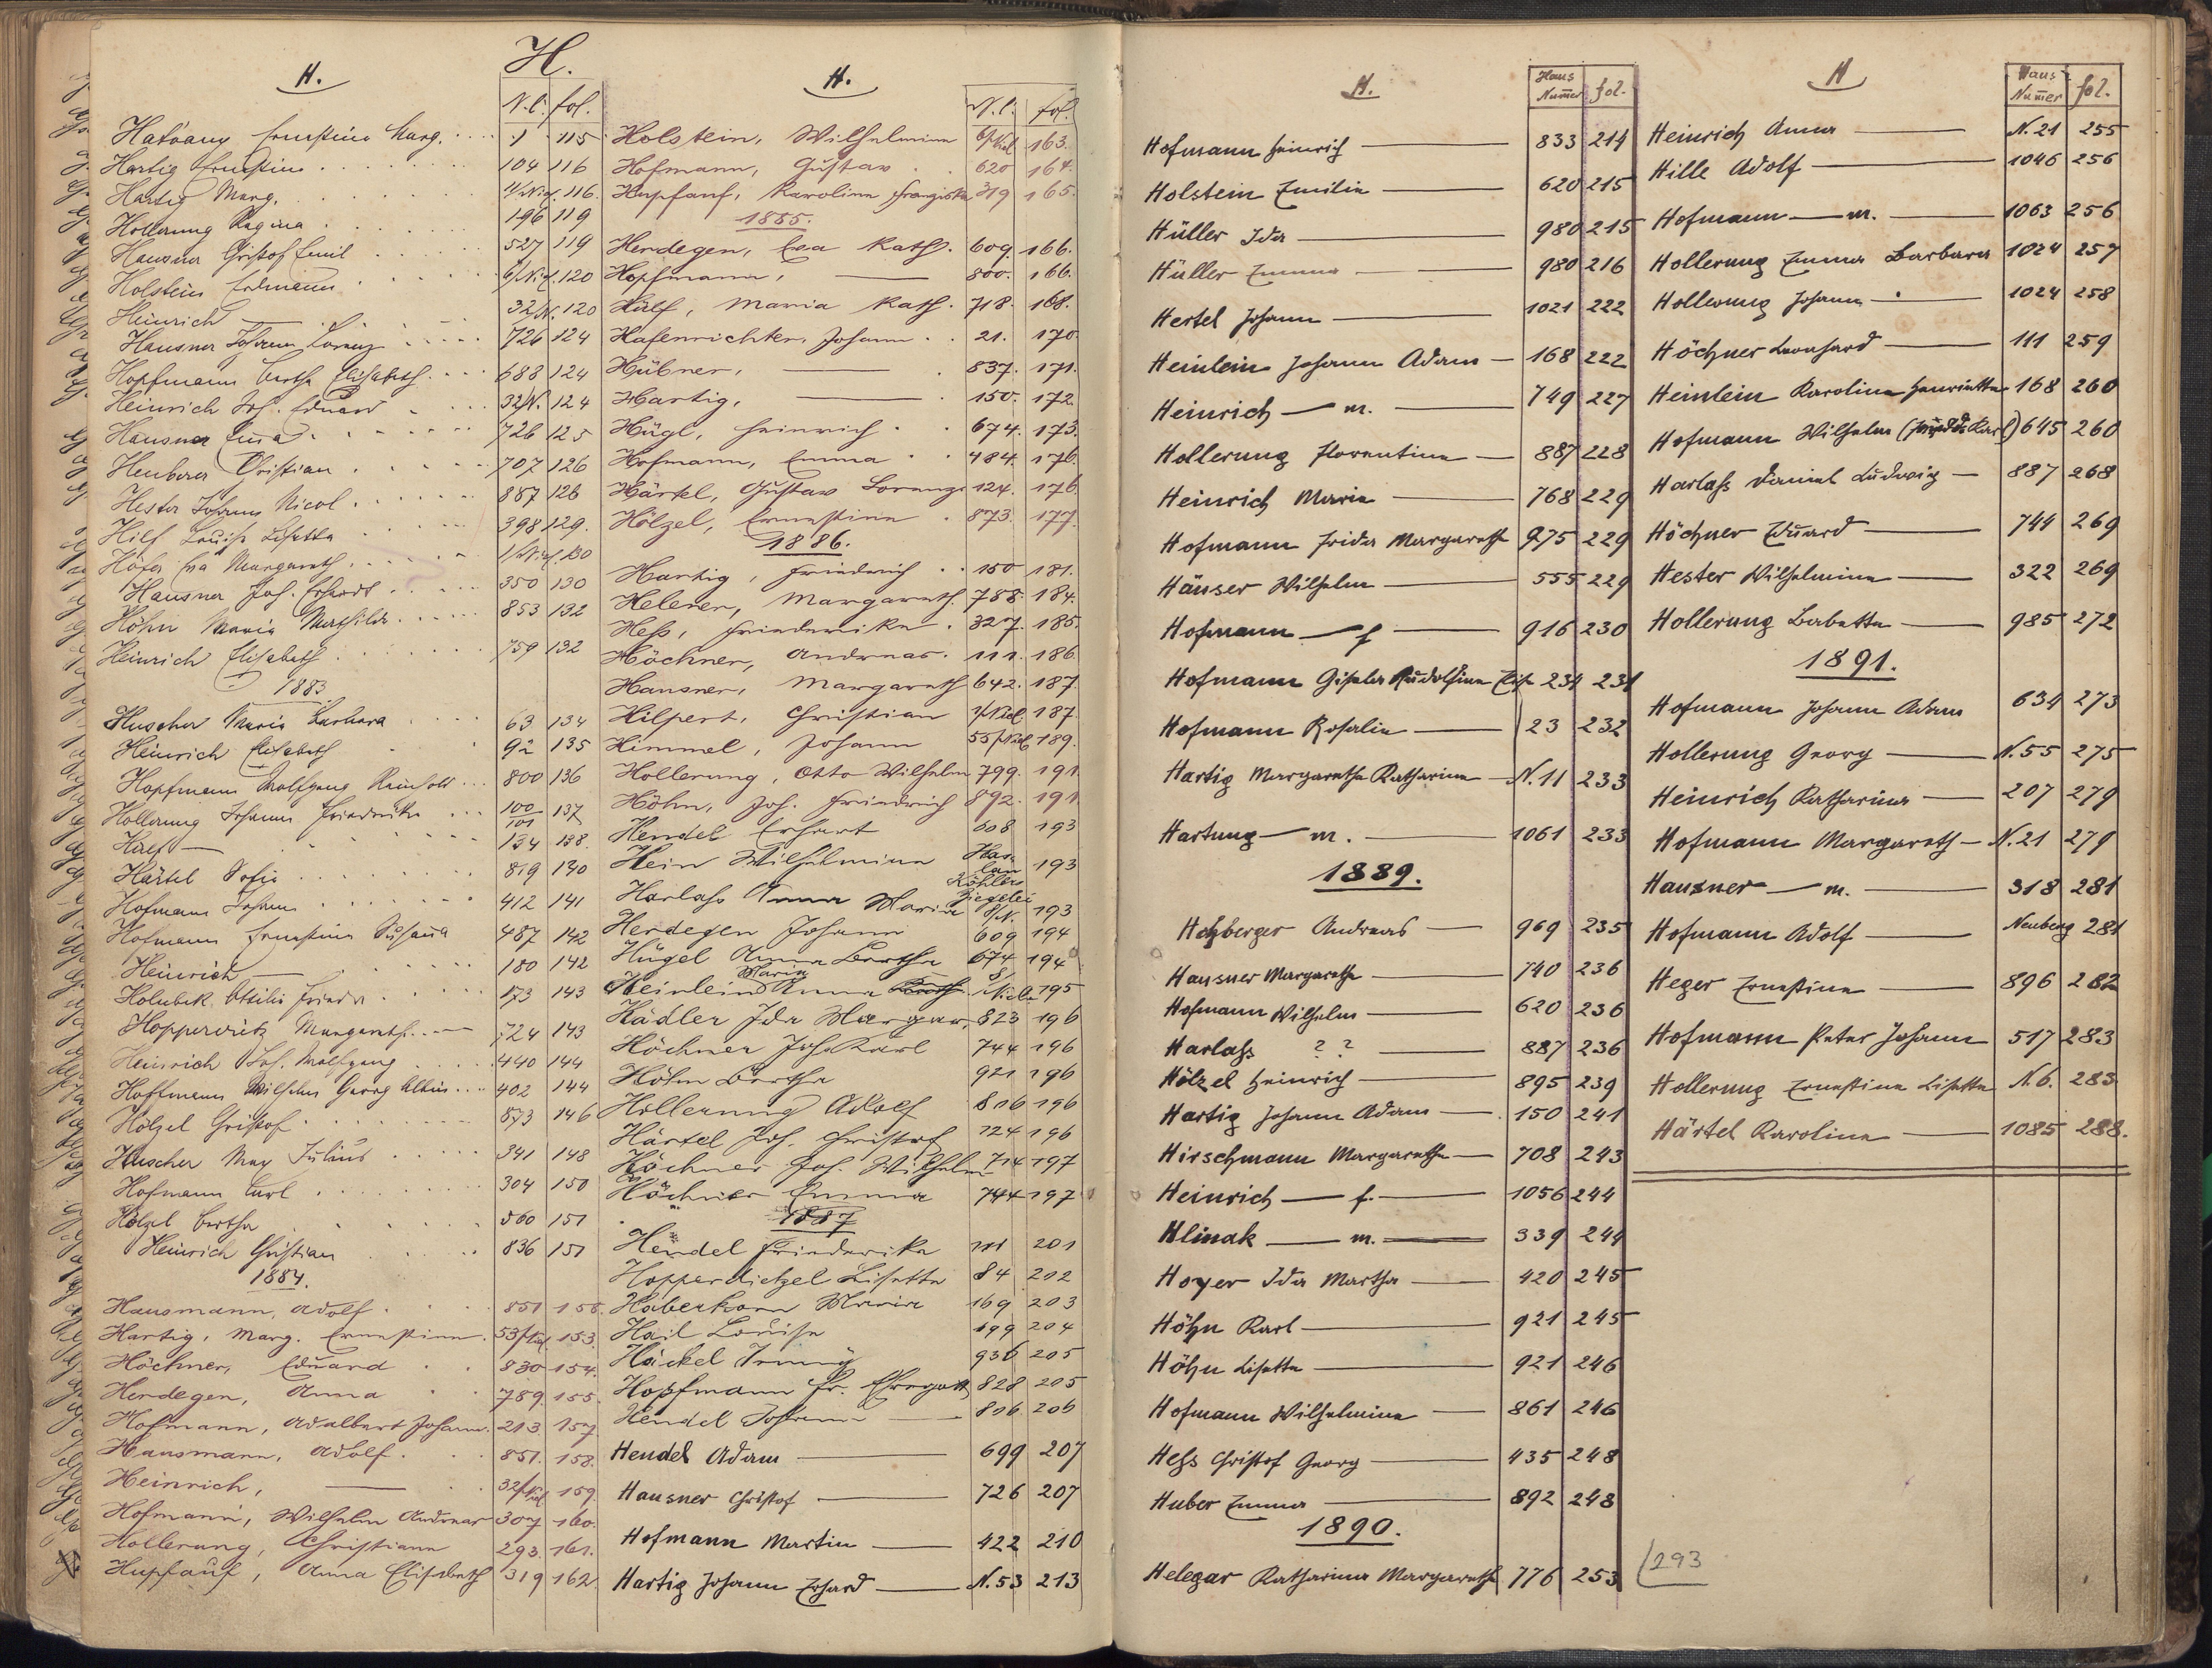 H.
H.
N.C. fol.
Hartig Ernestine 104 116
Hartig Marg. 116.
Hollerung Regina 196 119
Hausner Christof Emil 527 119
Holstein Erdmann 6/Nied. 120
Heinrich — 32/N. 120
Hausner Johann Lorenz 726 124
Hopfmann Bertha Elisabeth 688 124
Heinrich Joh. Eduard 32/N. 124
Hausner 726 125
Heuberer Christian 707 126
Hester Johann Nicol 887 126
Hilf Louise Lisetta 398 129.
Höfer Eva Margareth 130
Hausner Joh. Erhardt 350 130
Höhn Maria Mathilde 853 132
Heinrich Elisabeth 759 132
1883
Huscher Maria Barbara 63 134
Heinrich Elisabeth 92 135
Hopfmann Wolfgang Reinhold 800 136
Hollerung Johann Friedrike 100/101 137
— 134 138.
Härtel Sofie 819 140
Hofmann Johann 412 141
Hofmann Ernestine Susanna 487 142
Heinrich — 180 142
Holubek Ottilie Frieda 173 143
724 143
Heinrich Joh. Wolfgang 440 144
Hoffmann Wilhelm Georg Albin 402 144
Hölzel Christof 873 146
Huscher Max Julius 341 148
Hofmann Carl 304 150
Hölzel Bertha 560 151
Heinrich Christian 836 151
1884.
Hausmann, Adolf 851
Hartig, Marg. Ernestine. 53/Nied. 153.
Höchner, Eduard 830 154.
Herdegen, Anna 789. 155.
Hofmann, Adalbert Johann. 213. 157.
Hausmann, Adolf. 851. 158.
Heinrich, — 32/Nied. 159.
Hofmann, Wilhelm Andreas 307 160.
Hollerung, Christiane 293. 161.
Hupfauf, Anna Elisabeth 319 162
H.
N.C. fol.
Holstein, Wilhelmine 6/Nied. 163.
Hofmann, Gustav 620 164.
Hupfauf, Karoline Franziska 319 165.
1885.
Herdegen, Eva Kath. 609. 166.
Hopfmann, — 800. 166.
Hilf, Maria Kath. 718. 168.
Hafenrichter, Johann 21. 170.
Hübner, — 837. 171.
Hartig, — 150. 172.
Hügl, Heinrich 674. 173.
Hofmann, Emma 484. 176.
Härtel, Gustav Lorenz 124. 176.
Hölzel, Ernestine 873. 177.
1886.
Hartig, Friedrich 150 181.
Helerer, Margareth. 758. 184.
Heß, Friederike 327. 185.
Höchner, Andreas 111. 186.
Hausner, Margareth 642. 187.
Hilpert, Christian 187.
Himmel, Johann 55/Nied. 189.
Hollerung, Otto Wilhelm 799. 191.
Höhn, Joh. Friedrich 892. 191.
Hendel Erhart 608 193
Hein Wilhelmine Haslau Köhlers Ziegelei 193
Harlaß Anna Maria 8/N. 193
Herdegen Johann 609 194
Hügel Anna Bertha 674 194
Heinlein Anna Maria 195
Hädler Ida Margar. 823 196
Höchner Joh. Karl 744 196
Höhn Bertha 921 196
Hollerung Adolf 816 196
Härtel Joh. Christof 124 196
Höchner Joh. Wilhelm 714 197
Höchner Emma 744 197
1887
Hendel Friederika 201
Hopperdietzel Lisette 84 202
Haberkorn Maria 169 203
Hail Louise 699 204
Häckel Irmig 936 205
Hopfmann Fr. 828 205
Hendel Johann 806 206
Hendel Adam — 699 207
Hausner Christof — 726 207
Hofmann Martin — 422 210
Hartig Johann Erhard — N. 53 213
H.
Haus Num̄er fol.
Hofmann Heinrich — 833 214
Holstein Emilie — 620 215
Hüller Ida — 980 215
Hüller Emma — 980 216
Hertel Johann — 1021 222
Heinlein Johann Adam — 168 222
Heinrich — m. — 749 227
Hollerung Florentine — 887 228
Heinrich Marie — 768 229
Hofmann Frida Margareth 975 229
Häuser Wilhelm — 555 229
Hofmann — f — 916 230
Hofmann Gisela Rudolfine Elise 234 231
Hofmann Rosalie — 23 232
Hartig Margaretha Katharina — N. 11 233
Hartung — m. — 1061 233
1889.
Holzberger Andreas — 969 235
Hausner Margaretha — 740 236
Hofmann Wilhelm — 620 236
Harlaß ? ? — 887 236
Hölzel Heinrich — 895 239
Hartig Johann Adam — 150 241
Hirschmann Margaretha — 708 243
Heinrich — f. — 1056 244
Hlinak — m. — 339 244
Hoyer Ida Martha — 420 245
Höhn Karl — 921 245
Höhn Lisette — 921 246
Hofmann Wilhelmine — 861 246
Heß Christof Georg — 435 248
Huber Emma — 892 248
1890.
Helegar Katharina Margareth 776 253
H
Haus Num̄er fol.
Heinrich Anna — N. 21 255
Hille Adolf — 1046 256
Hofmann — m. — 1063 256
Hollerung Emma Barbara 1024 257
Hollerung Johann — 1024 258
Höchner Leonhard — 111 259
Heinlein Karoline Henriette 168 260
Hofmann Wilhelm 645 260
Harlaß Daniel Ludwig — 887 268
Höchner Eduard — 744 269
Hester Wilhelmine — 322 269
Hollerung Babette — 985 272
1891.
Hofmann Johann Adam 634 273
Hollerung Georg — N. 55 275
Heinrich Katharina — 207 279
Hofmann Margareth — N. 21 279
Hausner — m. — 318 281
Hofmann Adolf — Neuberg 281
Heger Ernestine — 896 282
Hofmann Peter Johann 517 283
Hollerung Ernestine Lisette N. 6. 283
Härtel Karoline — 1085 288.
293